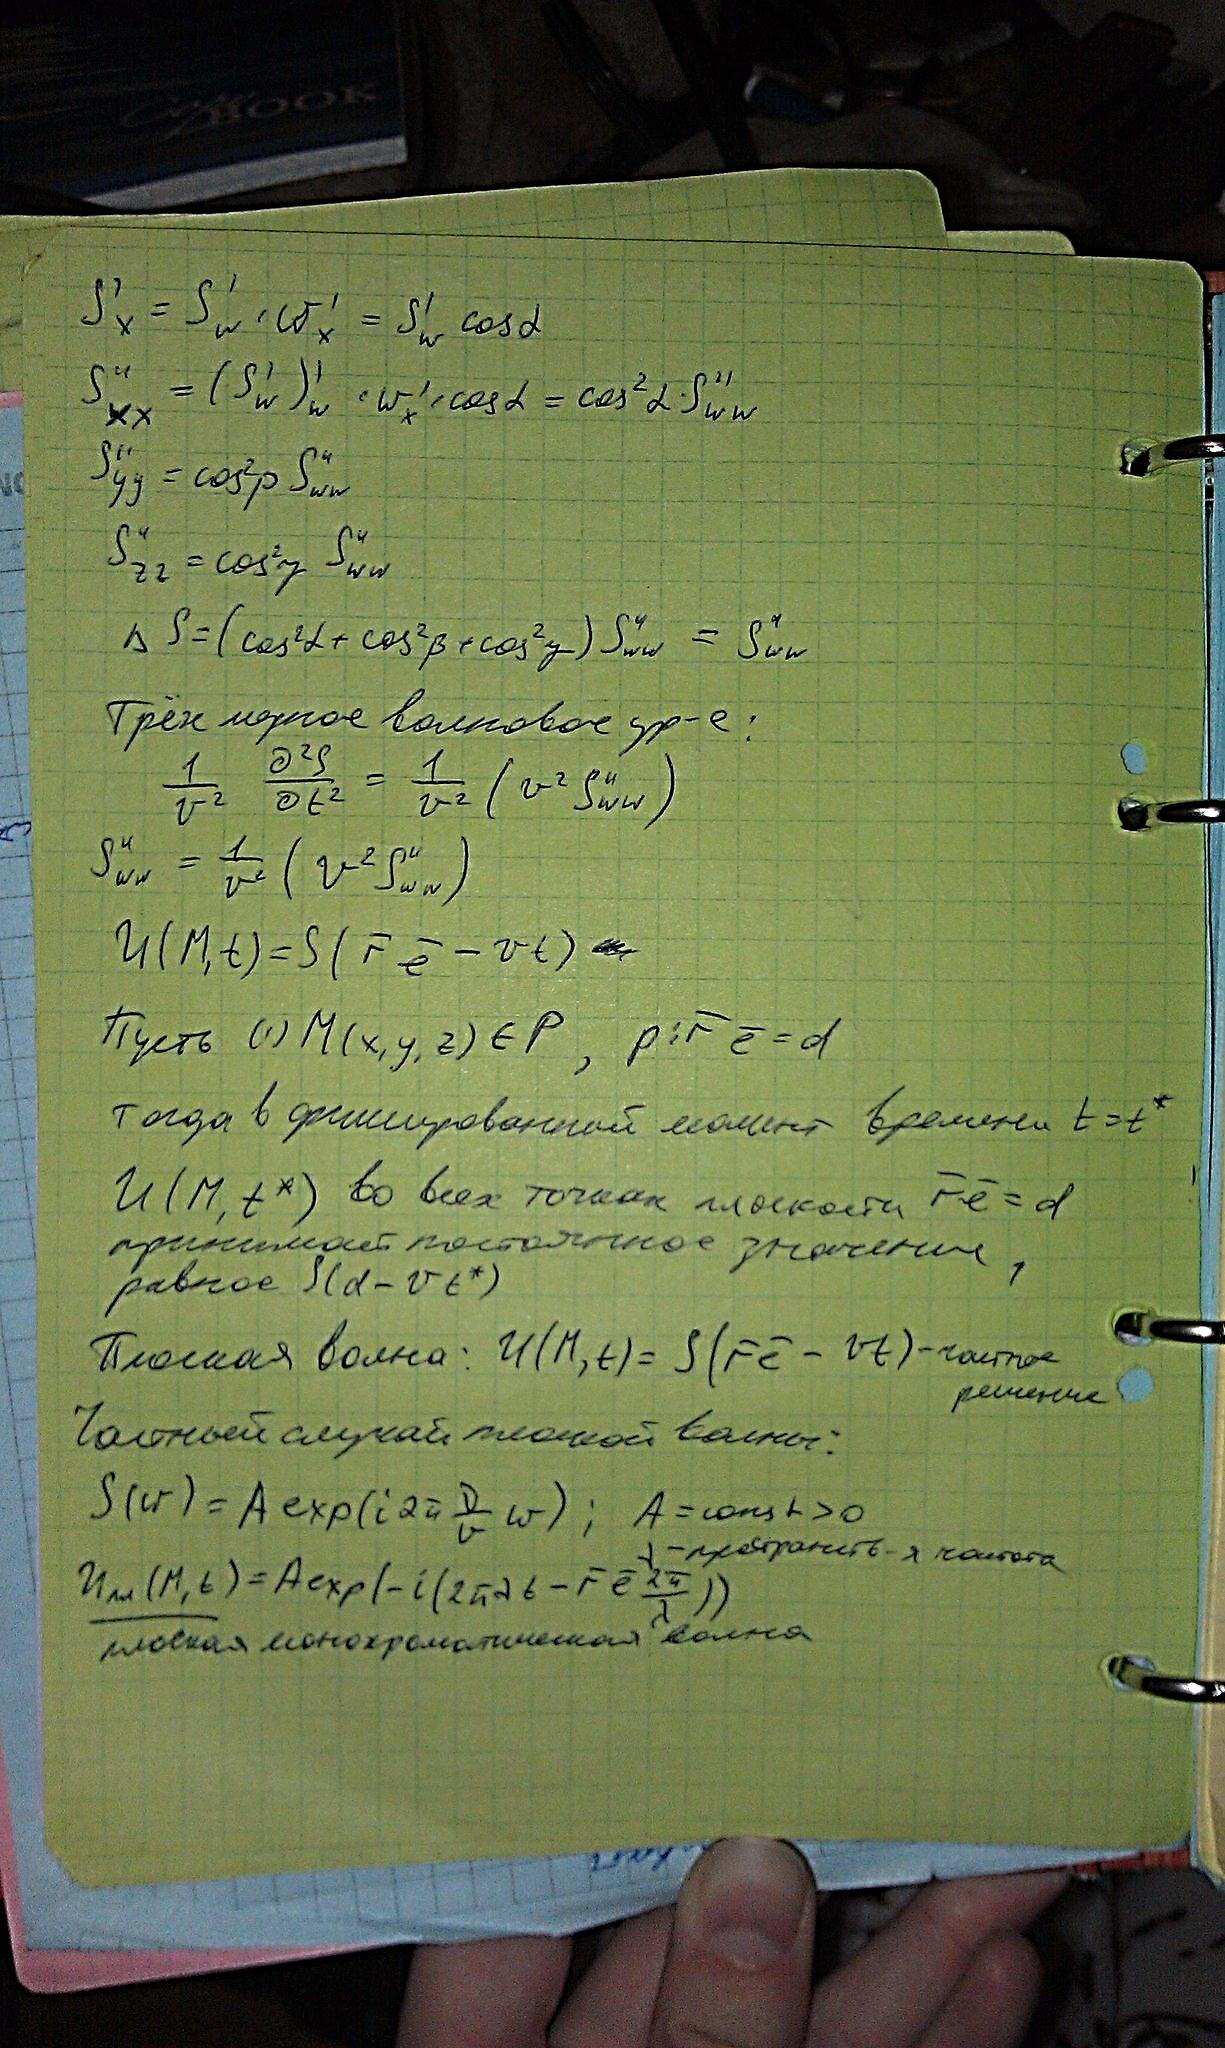 BOOK
S'x = S'w · w'x = S'w cosα
S''xx = (S'w)'w · w'x · cosα = cos²α · S''ww
S''yy = cos²β S''ww
S''zz = cos²γ S''ww
Δ S = (cos²α + cos²β + cos²γ) S''ww = S''ww
Трёх мерное волновое ур-е:
1/v² ∂²S/∂t² = 1/v² (v² S''ww)
S''ww = 1/v² (v² S''ww)
U(M,t) = S(r̄ ē - vt)
Пусть (·) M(x,y,z) ∈ P, p: r̄ ē = d
тогда в фиксированный момент времени t = t*
U(M,t*) во всех точках плоскости r̄ē = d
принимает постоянное значение,
равное S(d - vt*)
Плоская волна: U(M,t) = S(r̄ē - vt) - частное
решение
Частный случай плоской волны:
S(w) = A exp(i2π ν/v w); A = const > 0
λ - пространств-я частота
Uпл(M,t) = A exp(-i(2πνt - r̄ ē 2π/λ))
плоская монохроматическая волна